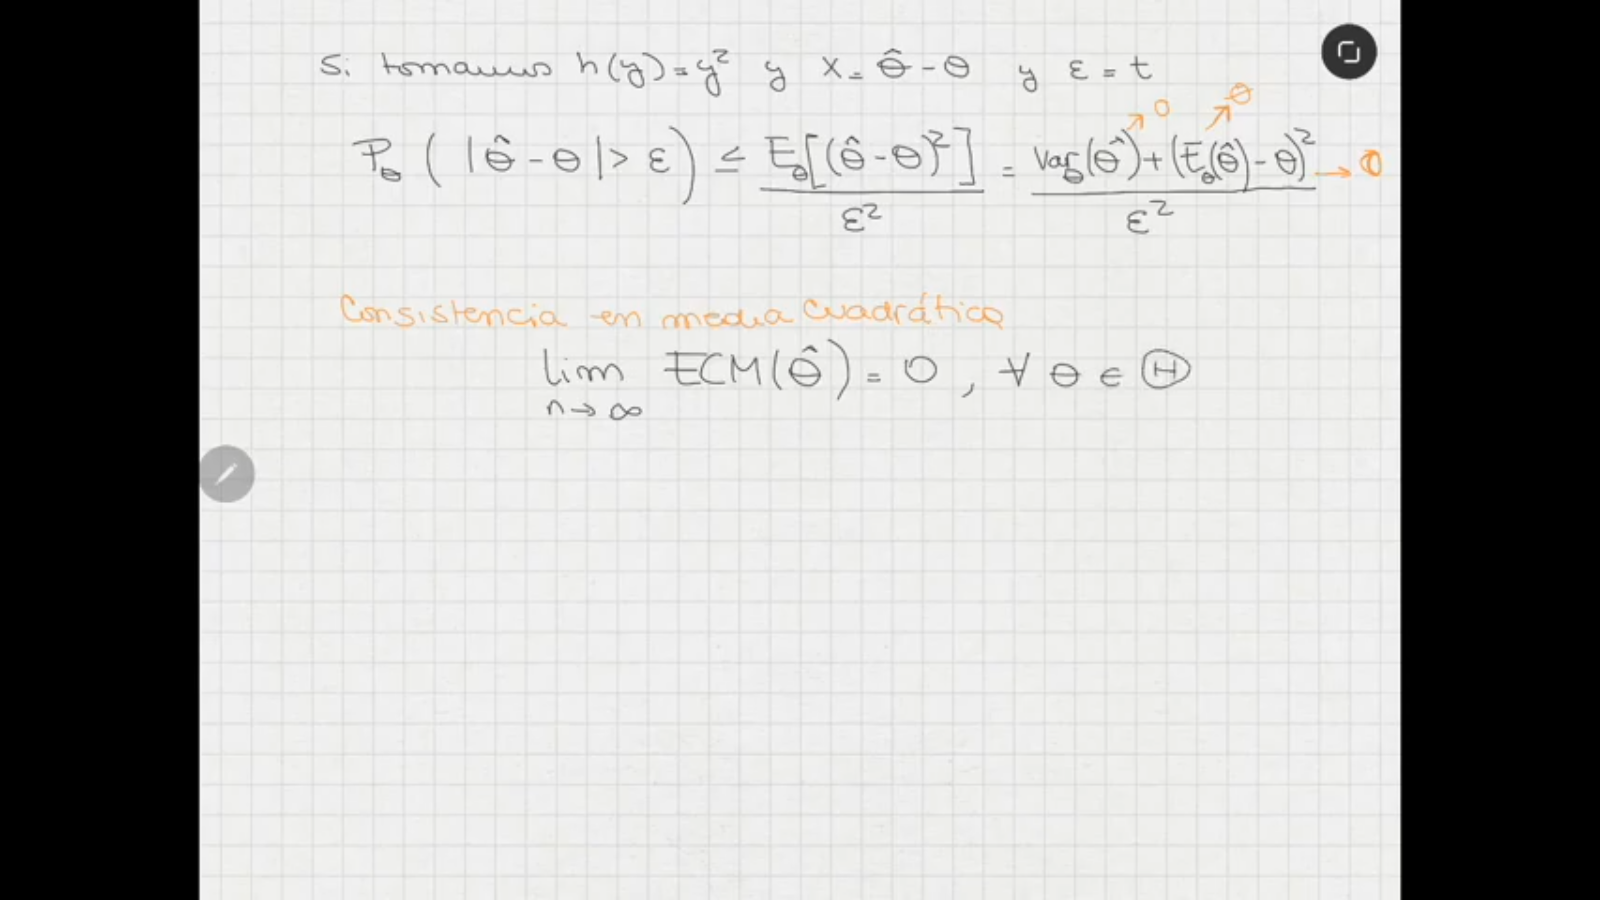 Si tomamos h(y) = y² y X = θ̂ - θ y ε = t
P_θ ( |θ̂ - θ| > ε ) ≤ E_θ[(θ̂ - θ)²] / ε² = (Var_θ(θ̂) ↗ 0 + (E_θ(θ̂) ↗ θ - θ)²) / ε² → 0
Consistencia en media cuadrática
lim n→∞ ECM(θ̂) = 0 , ∀ θ ∈ Θ